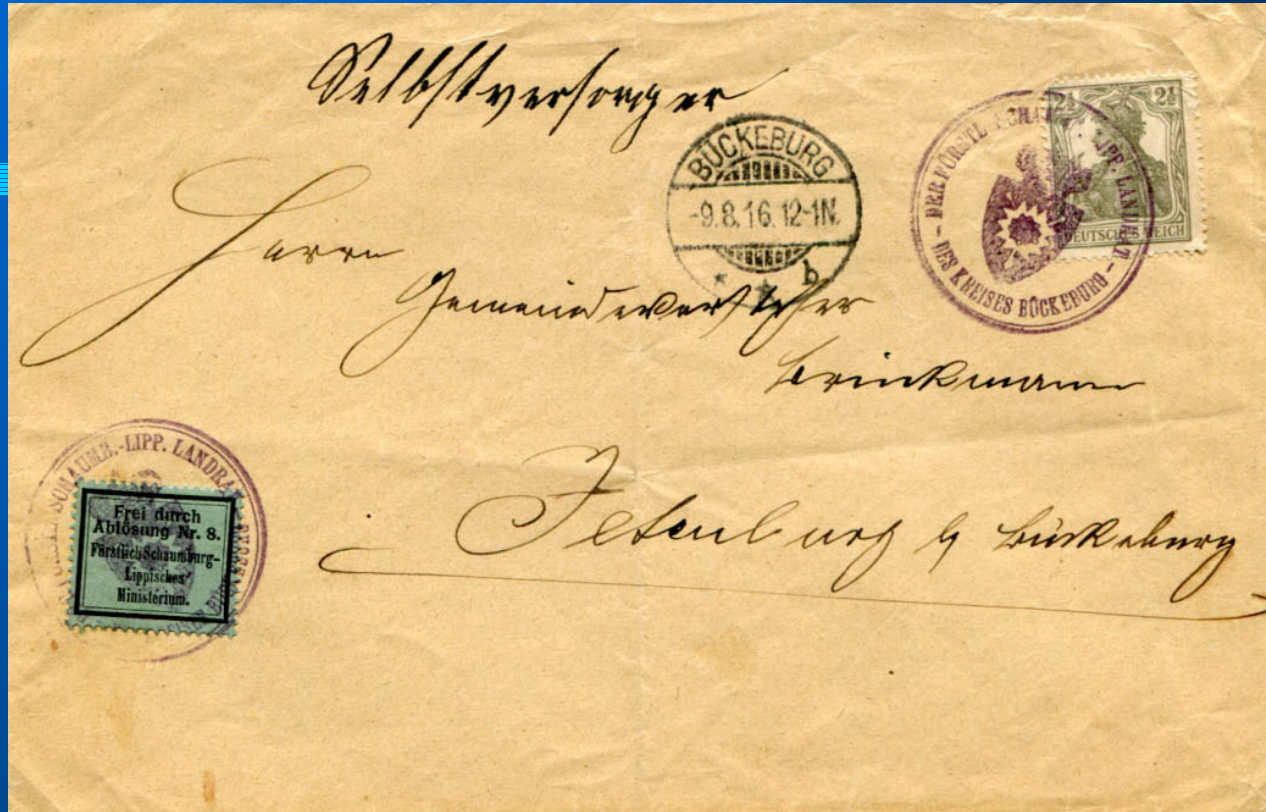 Selbstversorger
BÜCKEBURG
-9.8.16.12-1N.
* * b
2½ 2½
DEUTSCHES REICH
- DER FÜRSTL. SCHAU LIPP. LANDRAT -
DES KREISES BÜCKEBURG
Herrn
Gemeindevorsteher
Brinkmann
Jetenburg b/ Bückeburg
SCHAUMB.-LIPP. LANDRAT
Frei durch
Ablösung Nr. 8.
Fürstlich Schaumburg-
Lippisches
Ministerium.